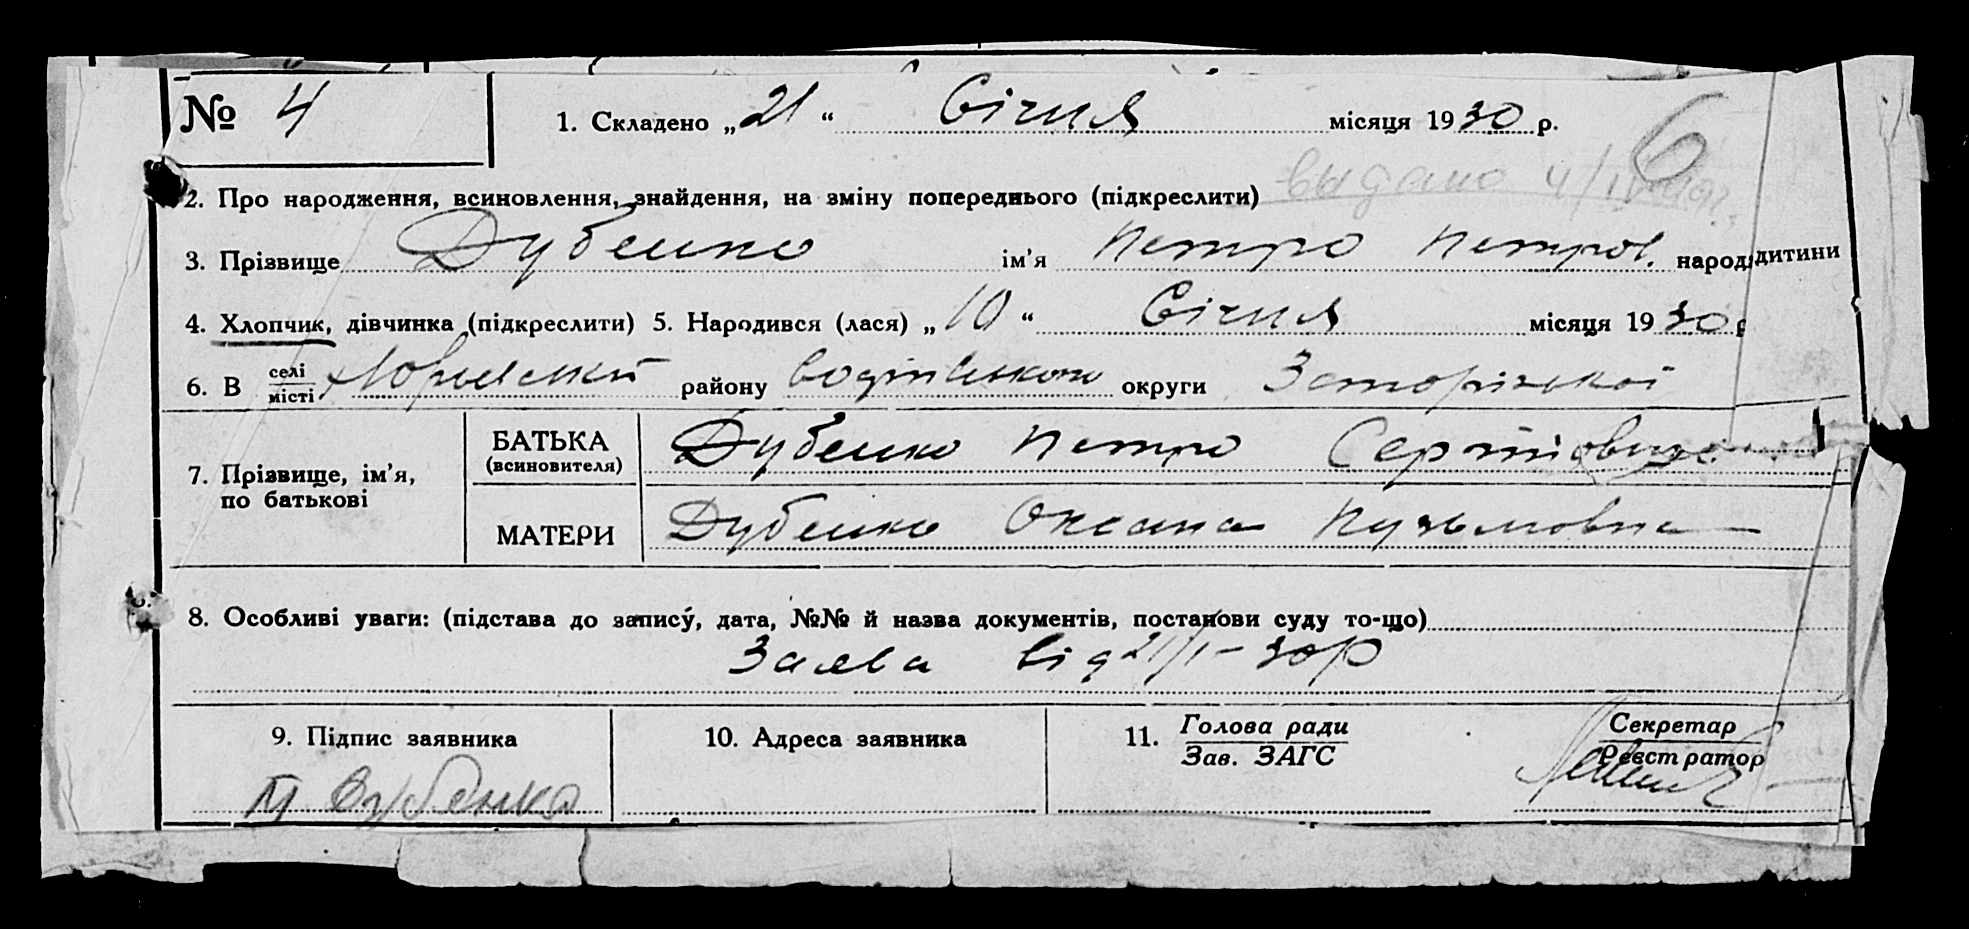 № 4
1. Складено „21“ Січня місяця 1930 р.
6
выдано 4/IV
2. Про народження, всиновлення, знайдення, на зміну попереднього (підкреслити)
3. Прізвище Дубенко ім'я Петро Петров. народ. дитини
4. Хлопчик, дівчинка (підкреслити) 5. Народився (лася) „10“ Січня місяця 1930 р
6. В селі/місті району округи Запорізької
7. Прізвище, ім'я, по батькові
БАТЬКА (всиновителя) Дубенко Петро
МАТЕРИ Дубенко Оксана Кузьмовна
8. Особливі уваги: (підстава до запису, дата, №№ й назва документів, постанови суду то-що)
Заява від 21/I-30р
9. Підпис заявника 10. Адреса заявника 11. Голова ради/Зав. ЗАГС Секретар/Реєстратор
П Дубенко